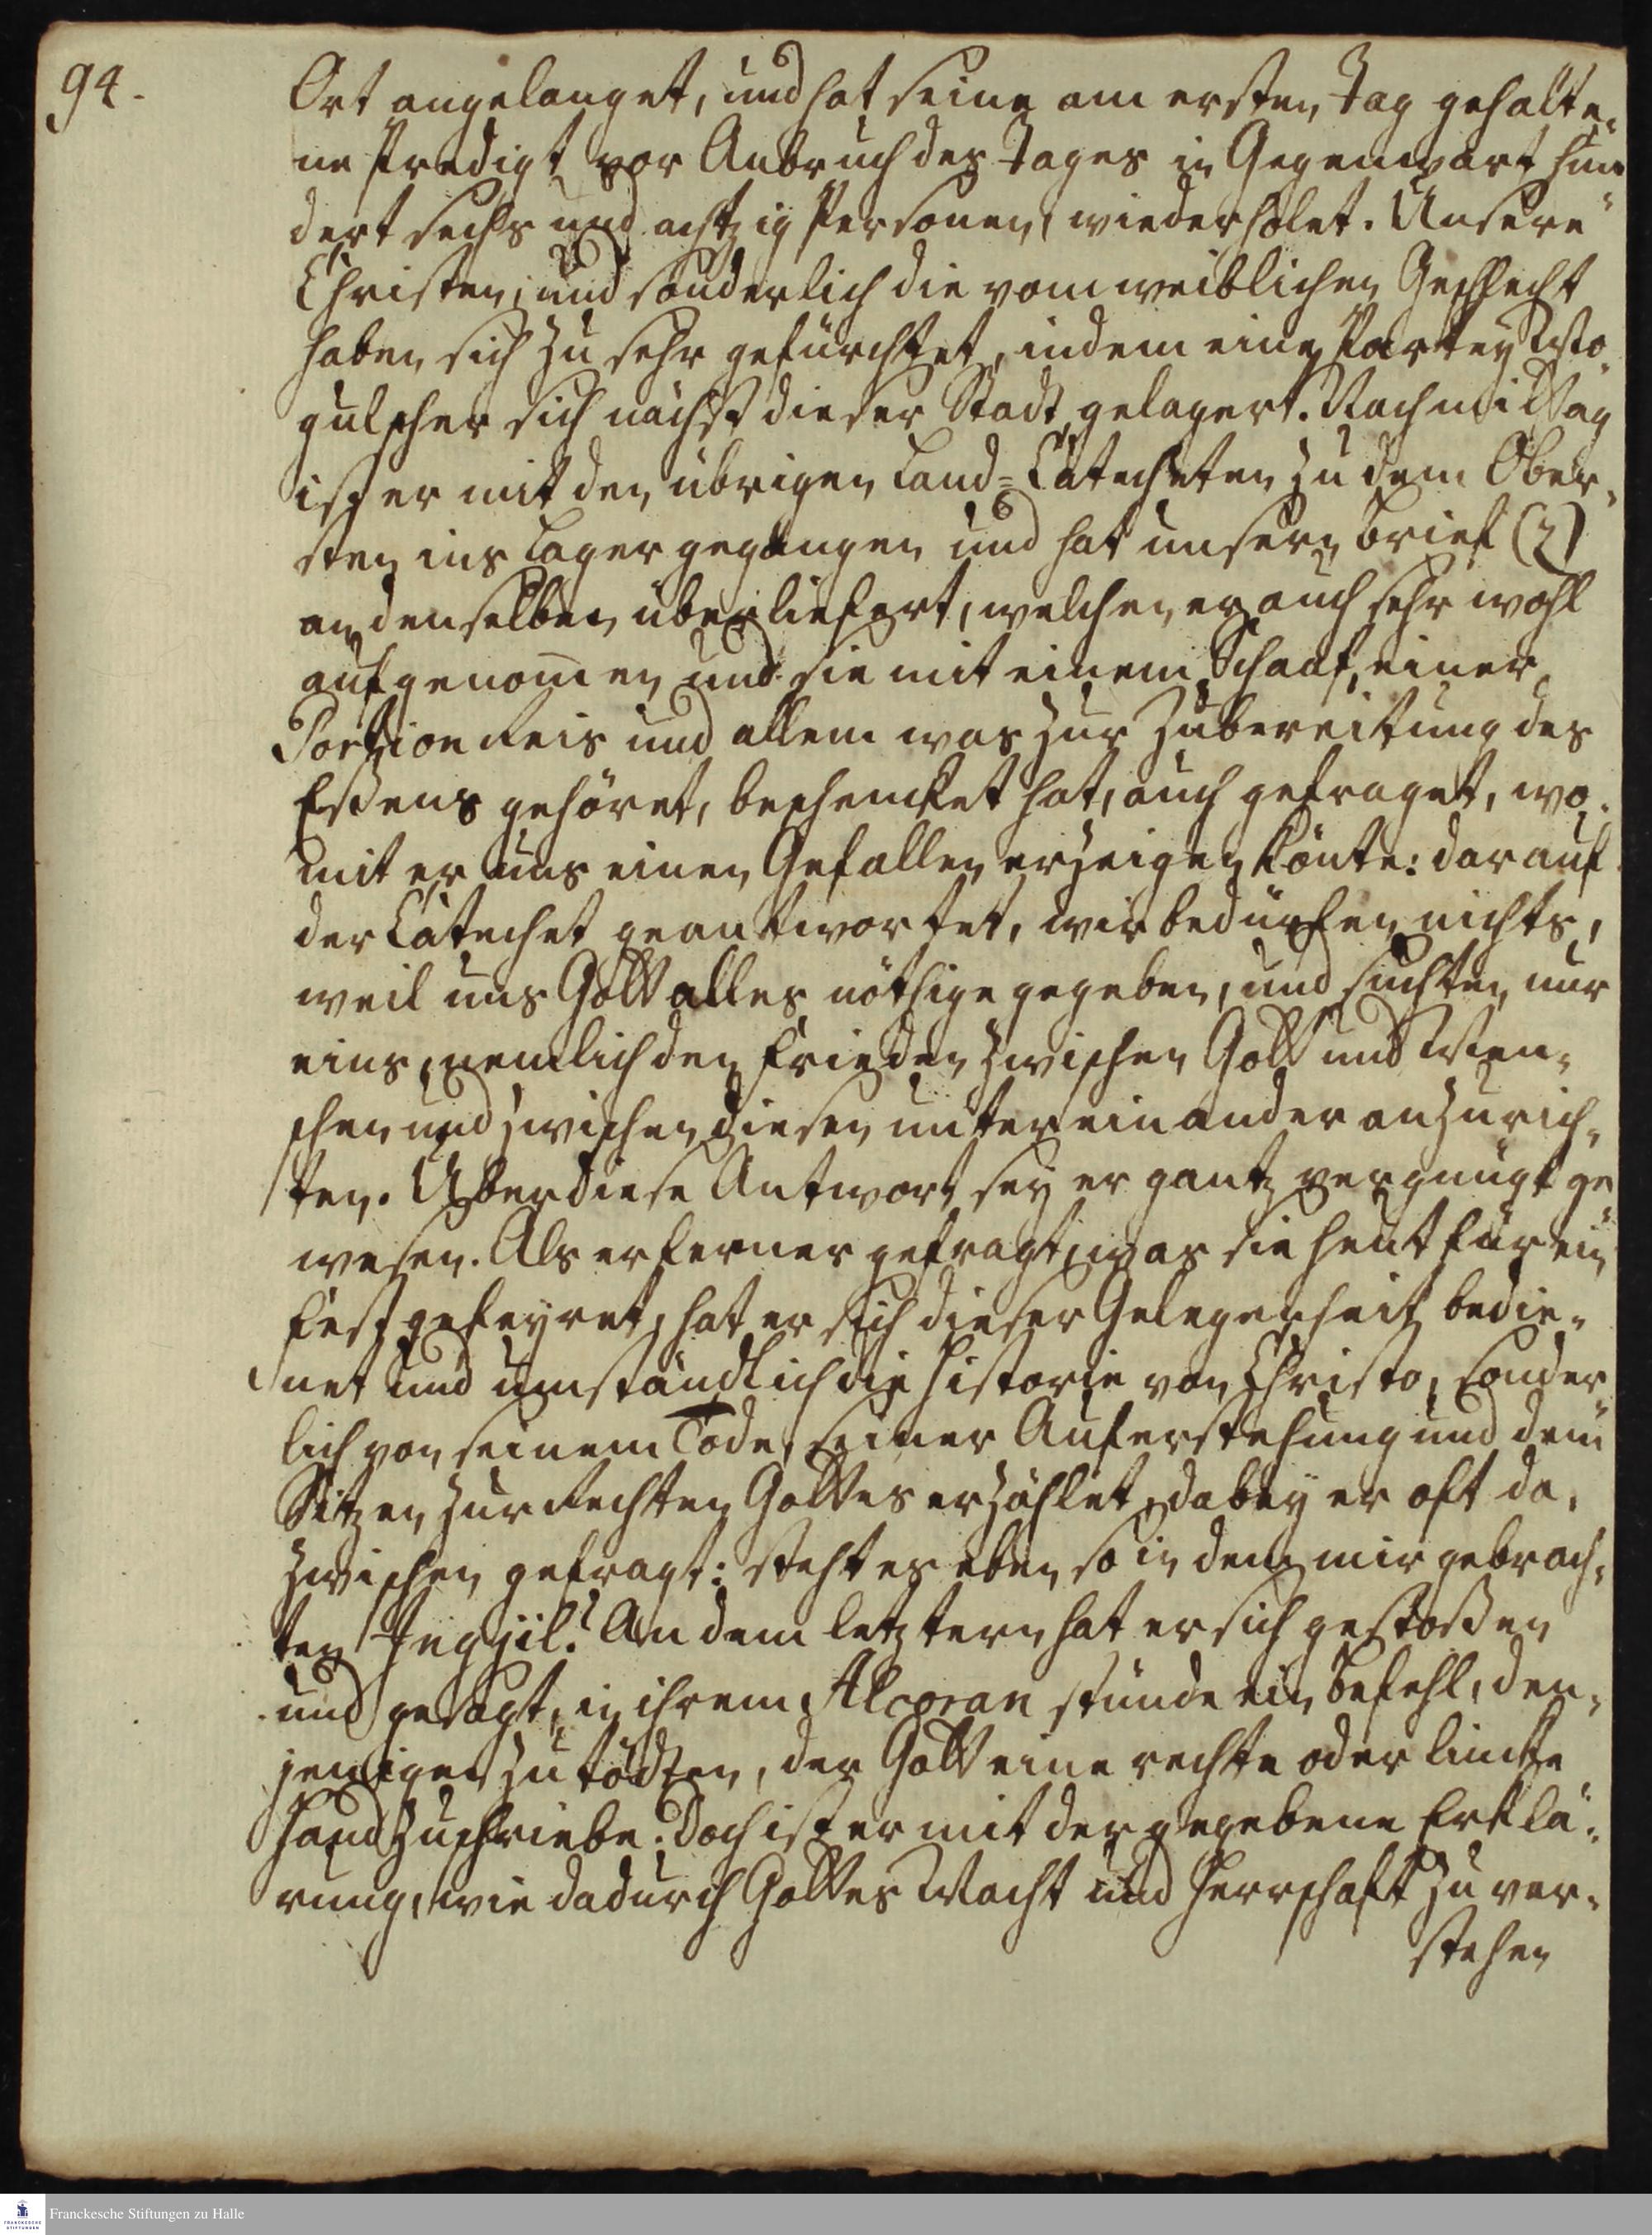 94.
Ort angelanget, und hat seine am ersten Tag gehalte-
ne Predigt vor Anbruch des Tages in Gegenwart hun-
dert sechs und achtzig Personen, wiederholet. Unsere
Christen, und sonderlich die vom weiblichen Geschlecht
haben sich zu sehr gefürchtet, indem eine Partey Mo-
gulscher sich nächst dieser Stadt gelagert. Nachmittag
ist er mit den übrigen Land-Catecheten zu dem Ober-
sten ins Lager gegangen und hat unsern Brief (z)
an denselben überliefert, welchen er auch sehr wohl
aufgenom̅en und sie mit einem Schaaf, einer
Portion Reis und allem was zur Zubereitung des
Eßens gehöret, beschencket hat, auch gefraget, wo-
mit er uns einen Gefallen erzeigen könte: darauf
der Catechet geantwortet, wir bedürfen nichts,
weil uns Gott alles nöthige gegeben, und suchten nur
eins, nemlich den Frieden zwischen Gott und Men-
schen und zwischen diesen unter einander anzurich-
ten. Über diese Antwort sey er gantz vergnügt ge-
wesen. Als er ferner gefragt, was sie heut für ein
Fest gefeyret, hat er sich dieser Gelegenheit bedie-
net und umständlich die Historie von Christo, sonder-
lich von seinem Tode, seiner Auferstehung und dem
Sitzen zur Rechten Gottes erzählet, dabey er oft da-
zwischen gefragt: steht es eben so in dem mir gebrach-
ten Ingjil? An dem letztern hat er sich gestoßen
und gesagt, in ihrem Alcoran stünde ein Befehl, den-
jenigen zu tödten, der Gott eine rechte oder lincke
Hand zuschriebe. Doch ist er mit der gegebene Erklä-
rung, wie dadurch Gottes Macht und Herrschaft zu ver-
stehen
Franckesche Stiftungen zu Halle